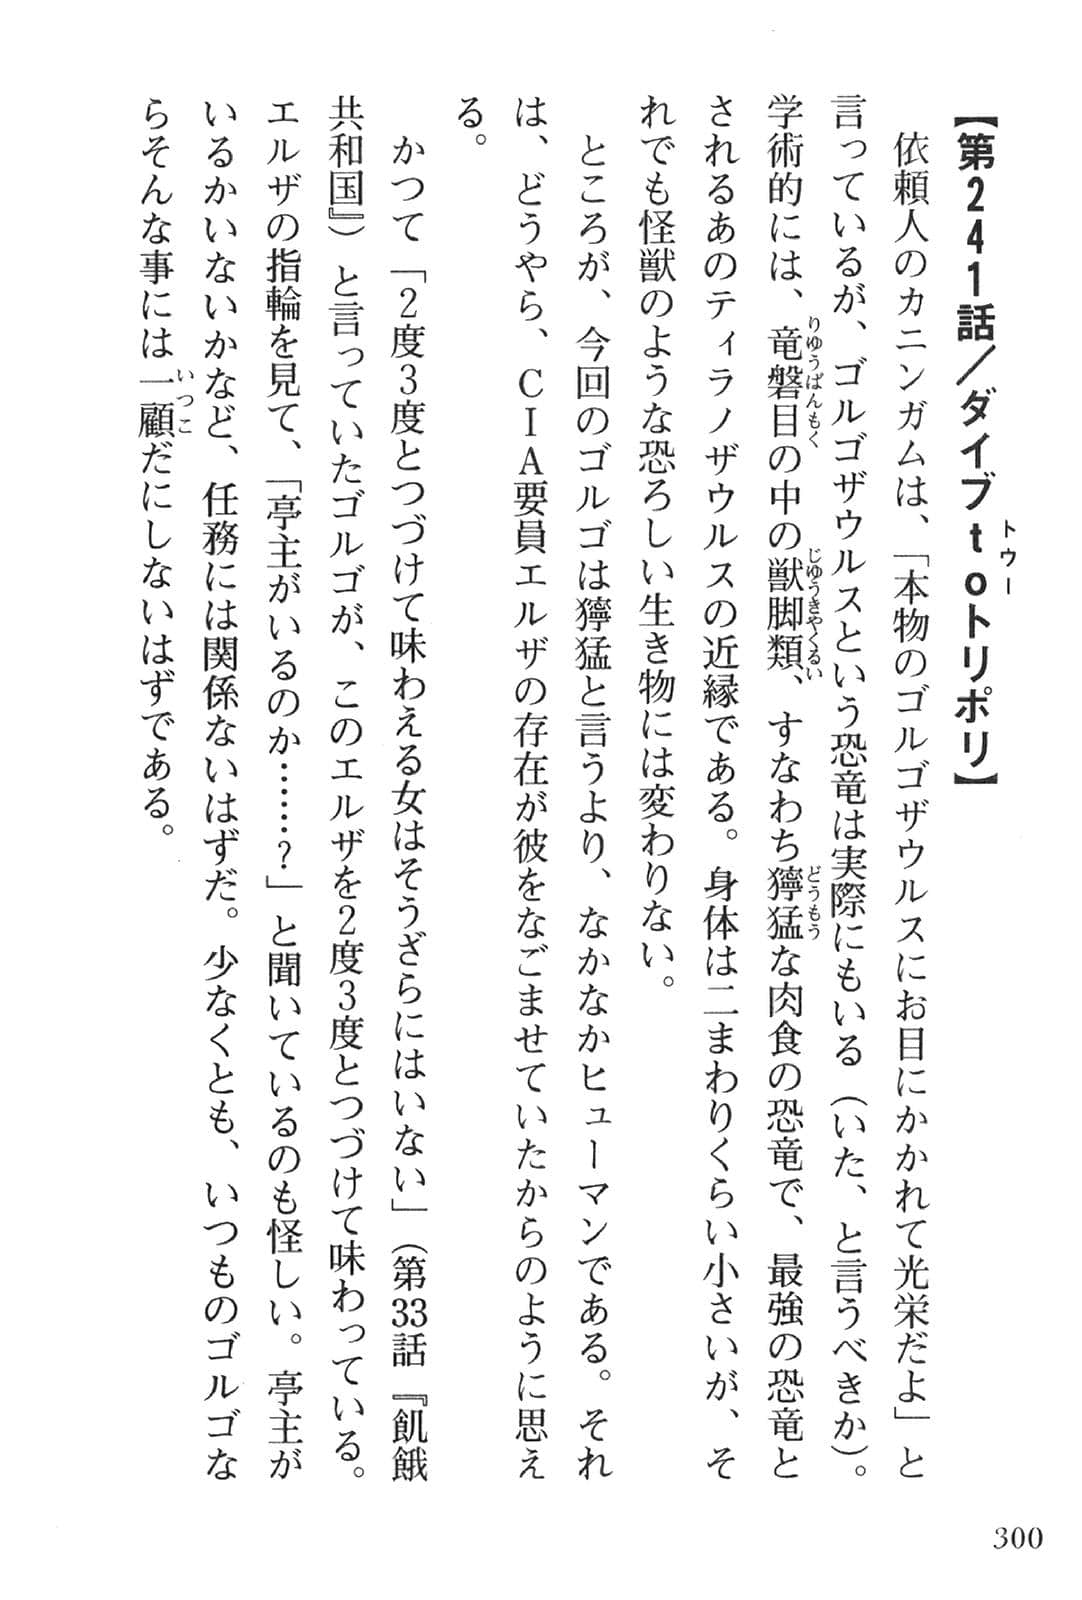 【第241話／ダイブtoトリポリ】
トゥー
依頼人のカニンガムは、「本物のゴルゴザウルスにお目にかかれて光栄だよ」と
言っているが、ゴルゴザウルスという恐竜は実際にもいる（いた、と言うべきか）。
学術的には、竜磐目の中の獣脚類、すなわち獰猛な肉食の恐竜で、最強の恐竜と
りゆうばんもく
じゆうきやくるい
どうもう
されるあのティラノザウルスの近縁である。身体は二まわりくらい小さいが、そ
れでも怪獣のような恐ろしい生き物には変わりない。
ところが、今回のゴルゴは獰猛と言うより、なかなかヒューマンである。それ
は、どうやら、CIA要員エルザの存在が彼をなごませていたからのように思え
る。
かつて「2度3度とつづけて味わえる女はそうざらにはいない」（第33話『飢餓
共和国』）と言っていたゴルゴが、このエルザを2度3度とつづけて味わっている。
エルザの指輪を見て、「亭主がいるのか……？」と聞いているのも怪しい。亭主が
いるかいないかなど、任務には関係ないはずだ。少なくとも、いつものゴルゴな
らそんな事には一顧だにしないはずである。
いつこ
300